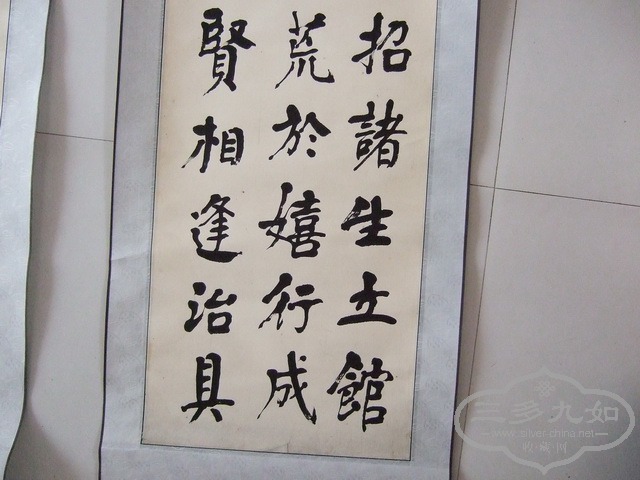 招諸生立館
荒於嬉行成
賢相逢治具
三多九如
www.niver-china.net